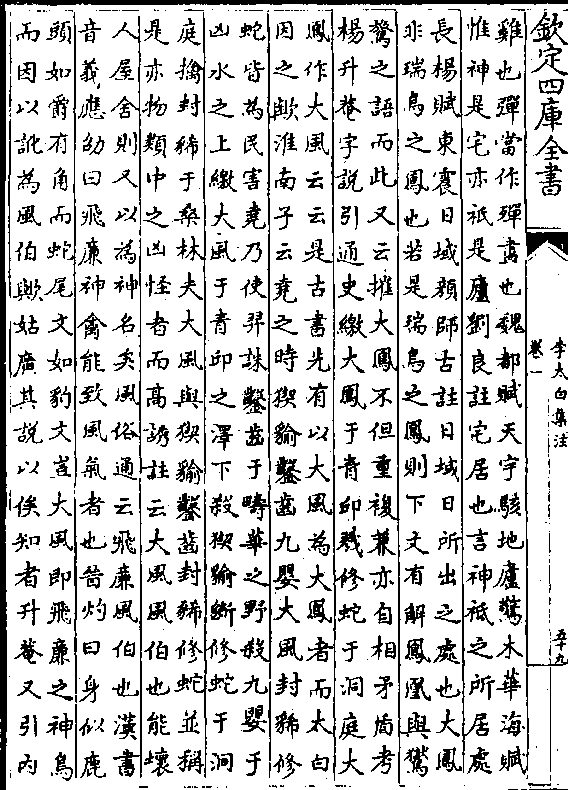 欽定四庫全書
李太白集注
卷一
五十九
雞也彈當作殫盡也魏都賦天宇駭地廬驚木華海賦
惟神是宅亦祇是廬劉良註宅居也言神祗之所居處
長楊賦東震日域顔師古註日域日所出之處也大鳳
非瑞鳥之鳳也若是瑞鳥之鳳則下文有解鳳凰與鸑
鷟之語而此又云摧大鳳不但重複兼亦自相矛盾考
楊升菴字說引通史繳大鳳于青邱戮修蛇于洞庭大
鳳作大風云云是古書先有以大風為大鳳者而太白
因之歟淮南子云堯之時猰貐鑿齒九嬰大風封豨修
蛇皆為民害堯乃使羿誅鑿齒于疇華之野殺九嬰于
凶水之上繳大風于青邱之澤下殺猰貐斷修蛇于洞
庭擒封豨于桑林夫大風與猰貐鑿齒封豨修蛇並稱
是亦物類中之凶怪者而高誘註云大風風伯也能壞
人屋舍則又以為神名矣風俗通云飛廉風伯也漢書
音義應劭曰飛廉神禽能致風氣者也晉灼曰身似鹿
頭如爵有角而蛇尾文如豹文豈大風即飛廉之神鳥
而因以訛為風伯歟姑廣其說以俟知者升菴又引內